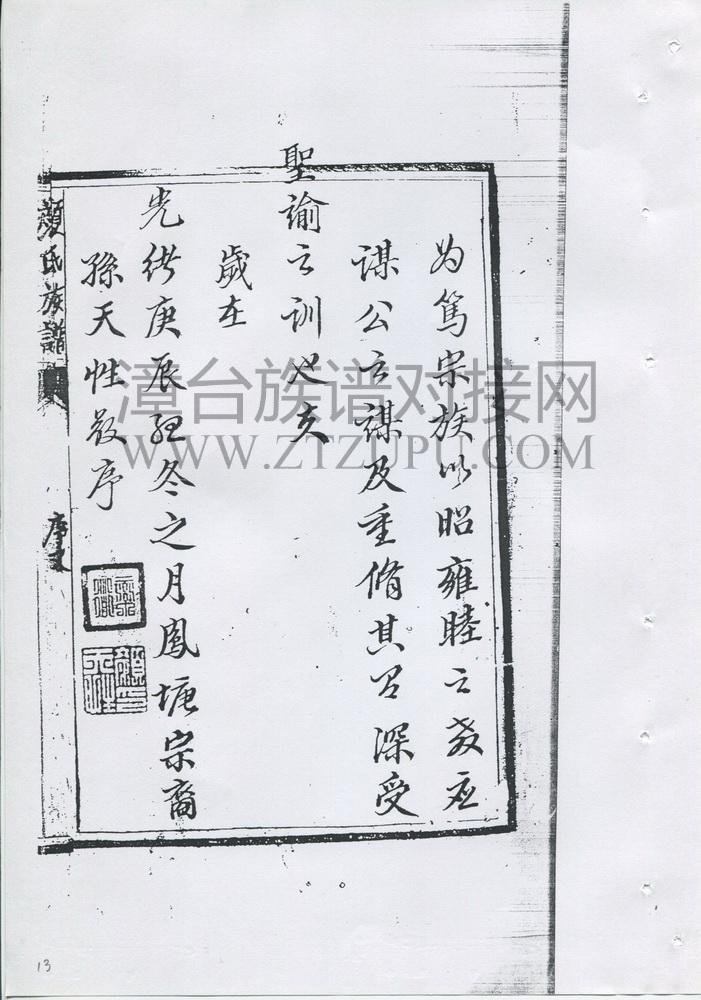 为篤宗族以昭雍睦之
谋公之謀及重脩其深受
聖諭之訓也夫
歲在
光绪庚辰孟冬之月鳳塘宗裔
孫天性敬序
顏氏族譜
序文
漳台族谱对接网
WWW.ZTZUPU.COM
13